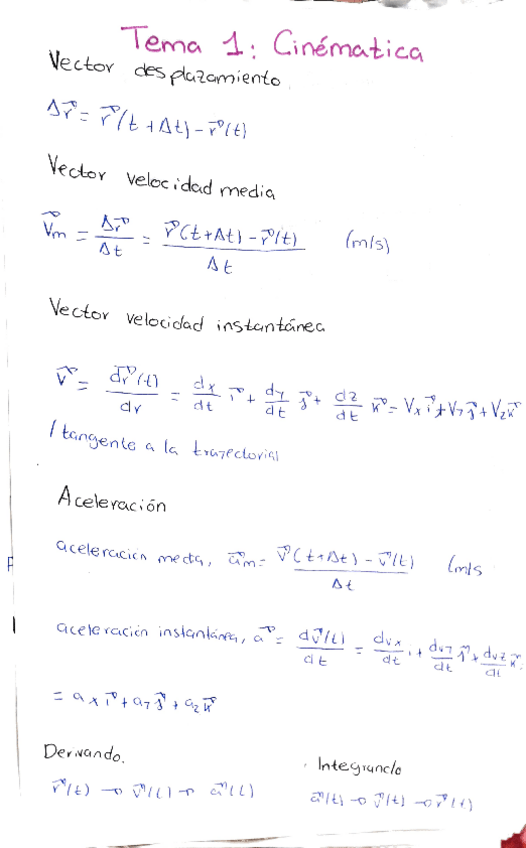 Tema 1: Cinématica
Vector desplazamiento
Δr⃗ = r⃗(t + Δt) - r⃗(t)
Vector velocidad media
v⃗m = Δr⃗/Δt = (r⃗(t+Δt) - r⃗(t))/Δt (m/s)
Vector velocidad instantánea
v⃗ = dr⃗(t)/dr = dx/dt i⃗ + dy/dt j⃗ + dz/dt k⃗ = Vx i⃗ + Vy j⃗ + Vz k⃗
(tangente a la trayectoria)
Aceleración
aceleración media, a⃗m = (v⃗(t+Δt) - v⃗(t))/Δt (m/s
aceleración instantánea, a⃗ = dv⃗(t)/dt = dvx/dt i + dvy/dt j⃗ + dvz/dt k⃗
= ax i⃗ + ay j⃗ + az k⃗
Derivando. Integrando
r⃗(t) → v⃗(t) → a⃗(t) a⃗(t) → v⃗(t) → r⃗(t)